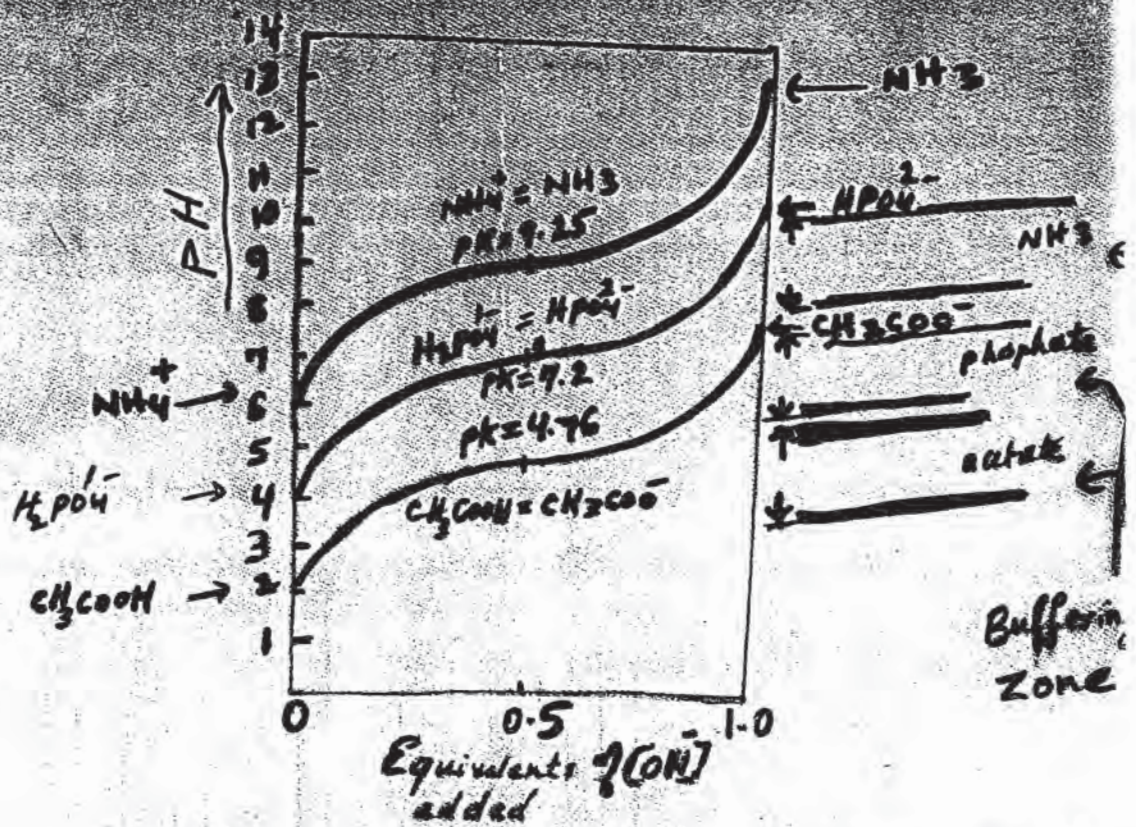 14
13
12
11
10
9
8
7
6
5
4
3
2
1
PH
NH4+ →
H2PO4 1- →
CH3COOH →
NH4+ = NH3
pK=9.25
H2PO4 1- = HPO4 2-
pK=7.2
pK=4.76
CH3COOH = CH3COO-
← NH3
← HPO4 2-
NH3
← CH3COO-
phophate
acetate
Bufferin
Zone
0 0.5 1.0
Equivalents of [OH-]
added